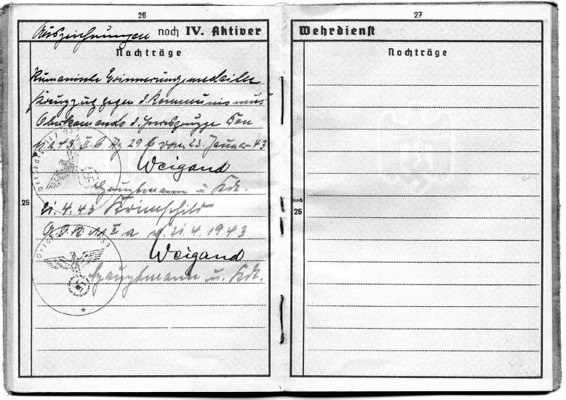 26
Auszeichnungen noch IV. Aktiver
Nachträge
Rumänische Erinnerungsmedaille
Kreuzzug gegen d. Kommunismus
Oberkomando d. Heeresgruppe Don
23. Januar 43
Weigand
Hauptmann u. Kdt.
21.4.43 Krimschild
v. 21.4.1943
Weigand
Hauptmann u. Kdt.
25
27
Wehrdienst
Nachträge
noch
25